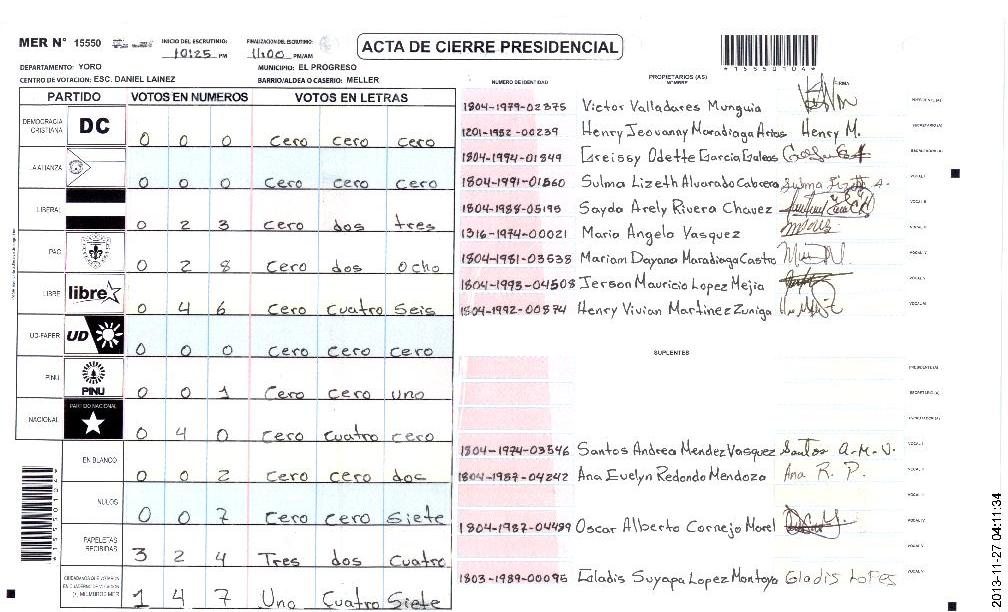 MER N° 15550
INICIO DEL ESCRUTINIO: 10:25 PM
FINALIZACION DEL ESCRUTINIO: 11:00 PM/AM
ACTA DE CIERRE PRESIDENCIAL
*15550104*
DEPARTAMENTO: YORO
MUNICIPIO: EL PROGRESO
CENTRO DE VOTACION: ESC. DANIEL LAINEZ
BARRIO/ALDEA O CASERIO: MELLER
PARTIDO VOTOS EN NUMEROS VOTOS EN LETRAS
DEMOCRACIA CRISTIANA DC 0 0 0 Cero Cero Cero
A.ALIANZA 0 0 0 Cero Cero Cero
LIBERAL 0 2 3 Cero dos tres
PAC 0 2 8 Cero dos Ocho
LIBRE libre 0 4 6 Cero Cuatro Seis
UD-FAPER UD 0 0 0 Cero Cero Cero
PINU PINU 0 0 1 Cero Cero Uno
NACIONAL PARTIDO NACIONAL 0 4 0 Cero Cuatro cero
EN BLANCO 0 0 2 Cero cero doc
NULOS 0 0 7 Cero Cero Siete
PAPELETAS RECIBIDAS 3 2 4 Tres dos Cuatro
CIUDADANOS QUE VOTARON EN CUADERNO DE VOTACION (+) MIEMBROS MER 1 4 7 Uno Cuatro Siete
NUMERO DE IDENTIDAD PROPIETARIOS (AS) NOMBRE FIRMA
1804-1979-02375 Victor Valladares Munguia PRESIDENTE(A)
1201-1982-00239 Henry Jeovanny Maradiaga Arias Henry M. SECRETARIO(A)
1804-1994-01849 Greissy Odette Garcia Galeas ESCRUTADOR(A)
1804-1991-01560 Sulma Lizeth Alvarado Cabrera VOCAL I
1804-1988-05195 Sayda Arely Rivera Chavez VOCAL II
1316-1974-00021 Maria Angela Vasquez
1804-1981-03538 Mariam Dayana Maradiaga Castro
1804-1995-04508 Jerson Mauricio Lopez Mejia
1804-1992-00874 Henry Vivian Martinez Zuniga
SUPLENTES
PRESIDENTE (A)
SECRETARIO (A)
ESCRUTADOR (A)
1804-1974-03546 Santos Andrea Mendez Vasquez Santos A.M.V. VOCAL I
1804-1987-04242 Ana Evelyn Redondo Mendoza Ana R. P. VOCAL II
1804-1987-04499 Oscar Alberto Cornejo Morel VOCAL IV
VOCAL V
1803-1989-00095 Gladis Suyapa Lopez Montoya Gladis Lopes
2013-11-27 04:11:34